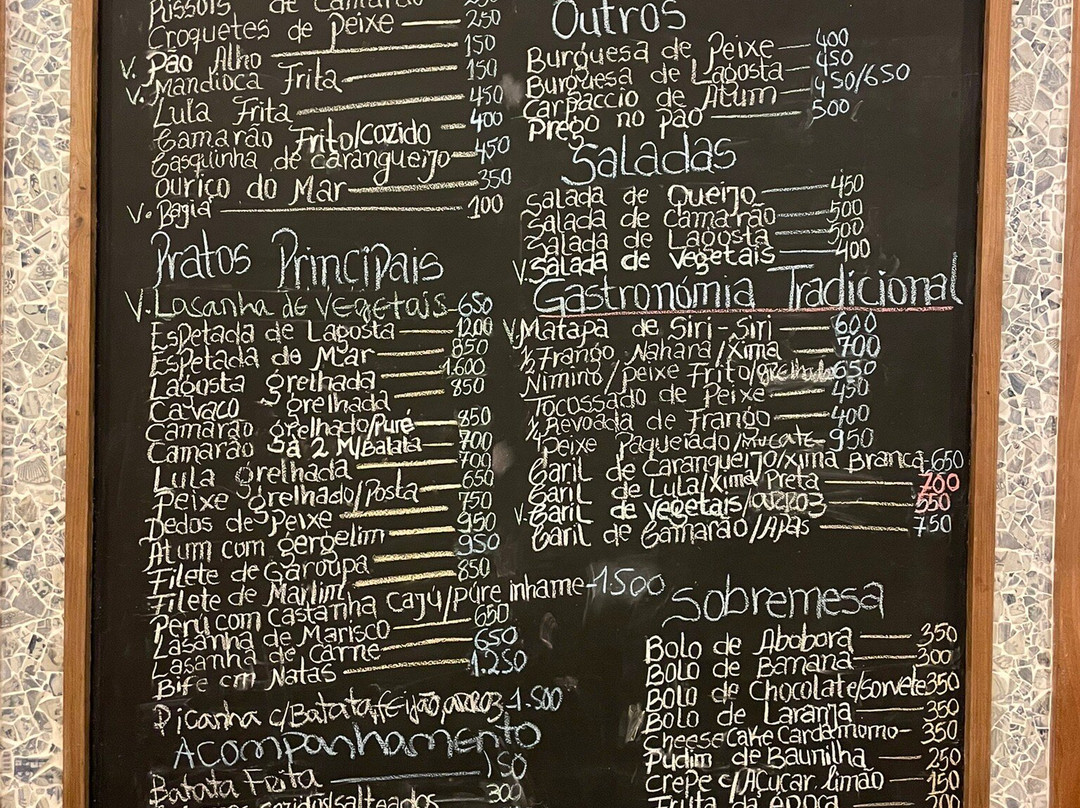 Rissóis de Camarão 250
Croquetes de Peixe 250
V. Pão Alho 150
V. Mandioca Frita 150
Lula Frita 450
Camarão Frito/cozido 400
Casquinha de carangueijo 450
ouriço do Mar 350
V. Bagia 100
Pratos Principais
V. Lasanha de vegetais 650
Espetada de Lagosta 1200
Espetada do Mar 850
Lagosta grelhada 1.600
Cavaco grelhada 850
Camarão grelhado/Puré 850
Camarão Sa 2 M/Batata 700
Lula grelhada 700
Peixe grelhado/Posta 650
Dedos de Peixe 750
Atum com gergelim 950
Filete de Garoupa 950
Filete de Marlim 850
Peru com Castanha Cajú/pure inhame 1500
Lasanha de Marisco 650
Lasanha de Carne 650
Bife em Natas 1.250
Picanha c/Batata, Feijão, arroz 1.500
Acompanhamento
Batata Frita 150
cozidos/salteados 300
Outros
Burguesa de Peixe 400
Burguesa de Lagosta 450
Carpaccio de Atum 450/650
Prego no pão 500
Saladas
Salada de Queijo 450
Salada de Camarão 500
Salada de Lagosta 500
V. Salada de vegetais 400
Gastronómia Tradicional
V. Matapa de Siri-Siri 600
½ Frango Nahara/Xima 700
Nimino/peixe Frito/grelhado 650
Tocossado de Peixe 450
¼ Revoada de Frango 400
Peixe Paqueiado/Mucate 950
Caril de Caranqueijo/xima Branca 650
Caril de Lula/Xima Preta 700
V. Caril de vegetais/arroz 550
Caril de Camarão/Apas 750
Sobremesa
Bolo de Abobora 350
Bolo de Banana 300
Bolo de Chocolate/sorvete 350
Bolo de Laranja 350
Cheese Cake Cardamomo 350
Pudim de Baunilha 250
Crepe c/Açucar. limão 150
Fruta da época 200